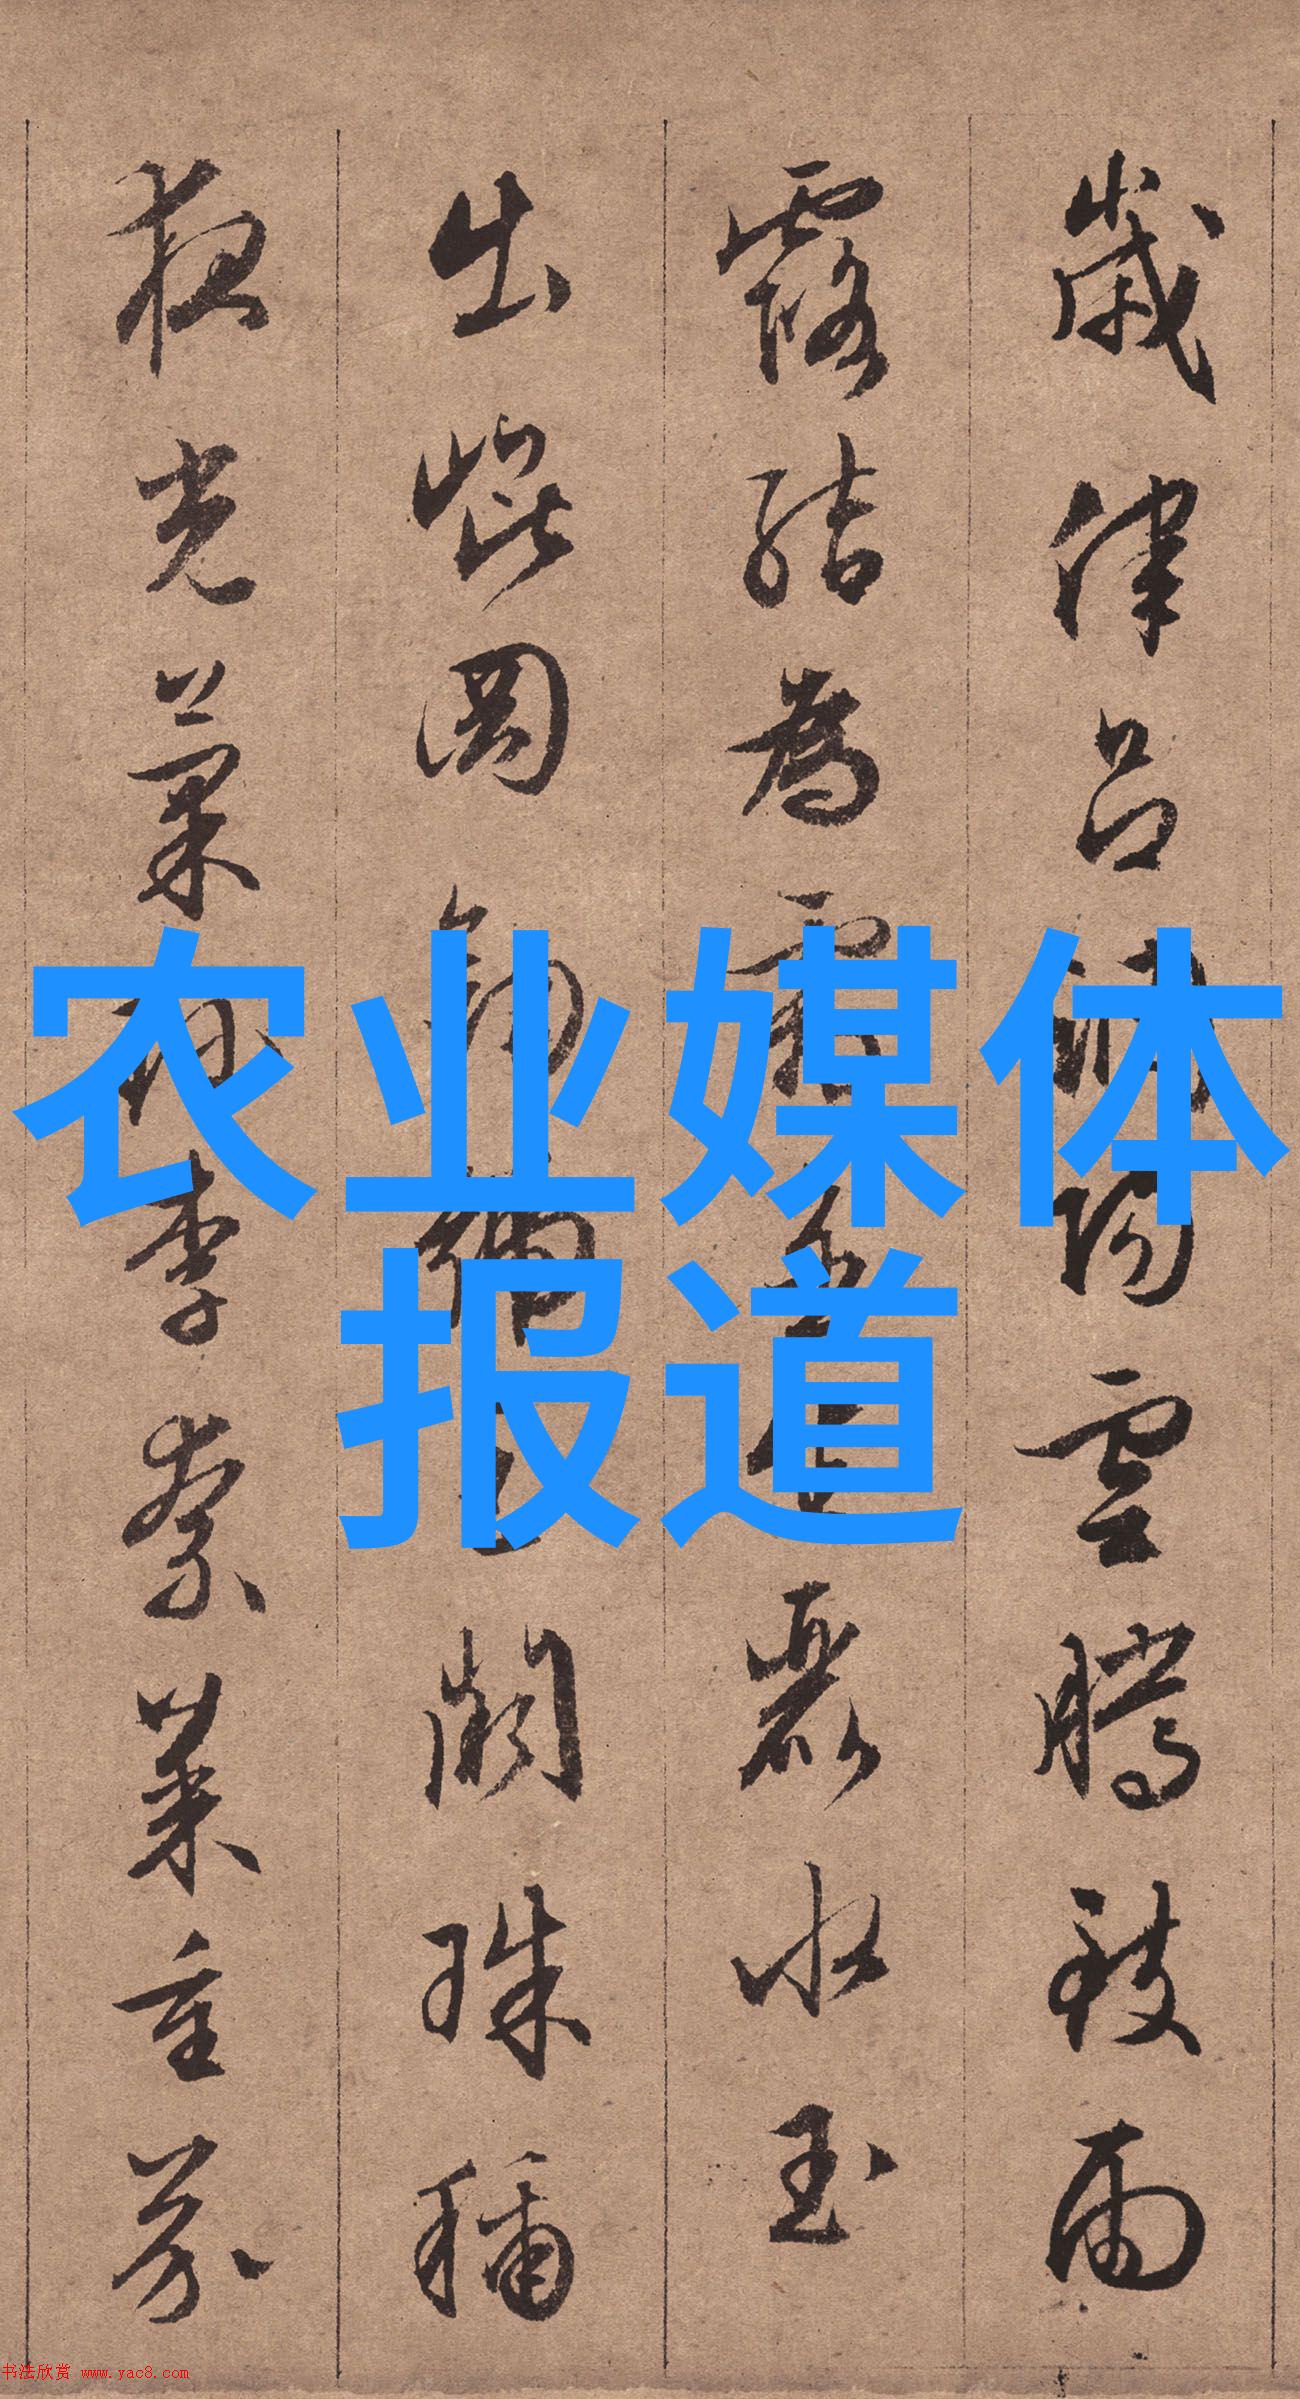 歲律呂調陽雲騰致雨
露結為霜金生麗水玉
出崐岡劍號巨闕珠稱
夜光菓珍李柰菜重芥
农业媒体
报道
书法欣赏 www.yac8.com